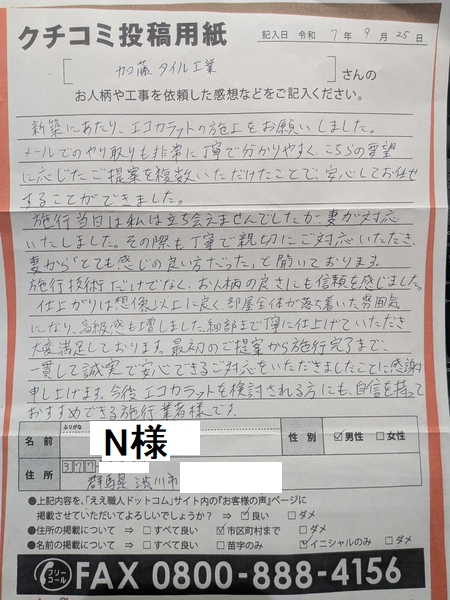 クチコミ投稿用紙
記入日 令和 7 年 9 月 25 日
[ 加藤タイル工業 ] さんの
お人柄や工事を依頼した感想などをご記入ください。
新築にあたり、エコカラットの施工をお願いしました。
メールでのやり取りも非常に丁寧で分かりやすく、こちらの要望
に応じたご提案を複数いただけたことで、安心してお任せ
することができました。
施行当日は私は立ち会えませんでしたが、妻が対応
いたしました。その際も丁寧で親切にご対応いただき、
妻から「とても感じの良い方だった」と聞いております。
施行技術だけでなく、お人柄の良さにも信頼を感じました。
仕上がりは想像以上に良く、部屋全体が落ち着いた雰囲気
になり、高級感も増しました。細部まで丁寧に仕上げていただき
大変満足しております。最初のご提案から施行完了まで、
一貫して誠実で安心できるご対応をいただきましたことに感謝
申し上げます。今後エコカラットを検討される方にも、自信を持って
おすすめできる施行業者様です。
名前 ふりがな N様 性別 ☑男性 □女性
住所 377
群馬県 渋川市
●上記内容を、「ええ職人ドットコム」サイト内の『お客様の声』ページに
掲載させていただいてよろしいでしょうか? ⇒ ☑良い □ダメ
●住所の掲載について ⇒ □すべて良い ☑市区町村まで □ダメ
●名前の掲載について ⇒ □すべて良い □苗字のみ ☑イニシャルのみ □ダメ
フリーコール FAX 0800-888-4156